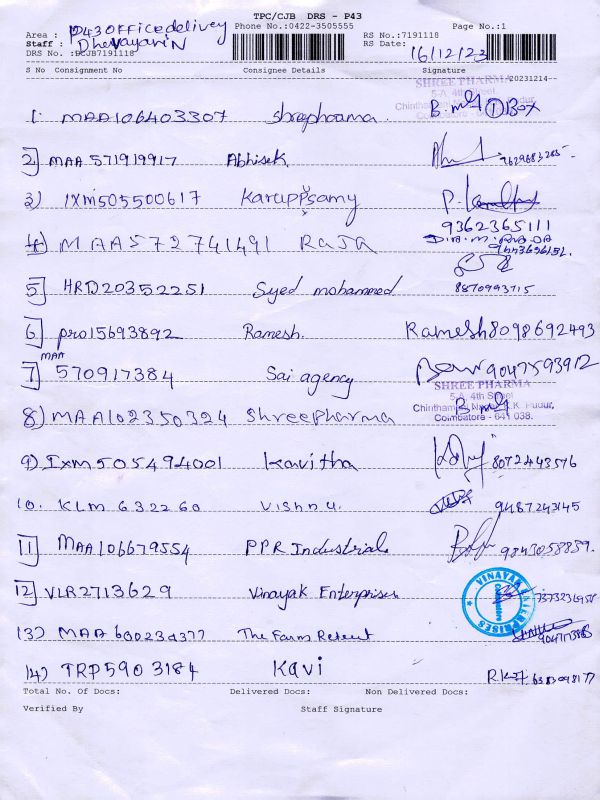 TPC/CJB DRS - P43
Area : P43 Office delivery Phone No.:0422-3505555 RS No.:7191118 Page No.:1
Staff : Dhevayarin RS Date: 16/12/23
DRS No. :DCJB7191118
S No Consignment No Consignee Details Signature 20231214--
SHREE PHARMA
5-A, 4th Street,
1. MAA106403307 Shreepharma B. ① Box
2] MAA 571919917 Abhisek 9629683265
3) IXM505500617 Karuppsamy P.
9362365111
4] MAA572741491 RAJA
5] HRD20352251 Syed mohammed 8870993715
6] PRO15693892 Ramesh. Ramesh 8098692493
7] MAA 570917384 Sai agency 9047593912
SHREE PHARMA
5-A, 4th Street
8) MAA102350324 Shreepharma
Coimbatore - 641 038.
9) IXM505494001 Kavitha 8072443576
10. KLM 632260 Vishnu. 9487243145
11] MAA106679554 PPR Industrial 9843058839.
12] VLR2713629 Vinayak Enterprises
VINAYAK ENTERPRISES
13) MAA 600234377 The Farm Retreut
14) TRP5903184 Kavi
Total No. Of Docs: Delivered Docs: Non Delivered Docs:
Verified By Staff Signature